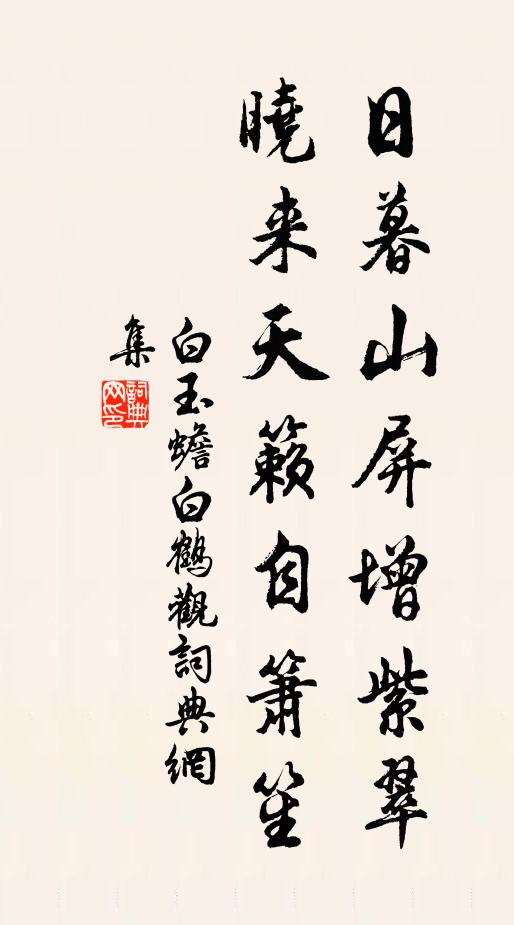 日暮山屏增紫翠
曉来天籟自簫笙
白玉蟾白鶴觀詞典網
集
詞典
网印